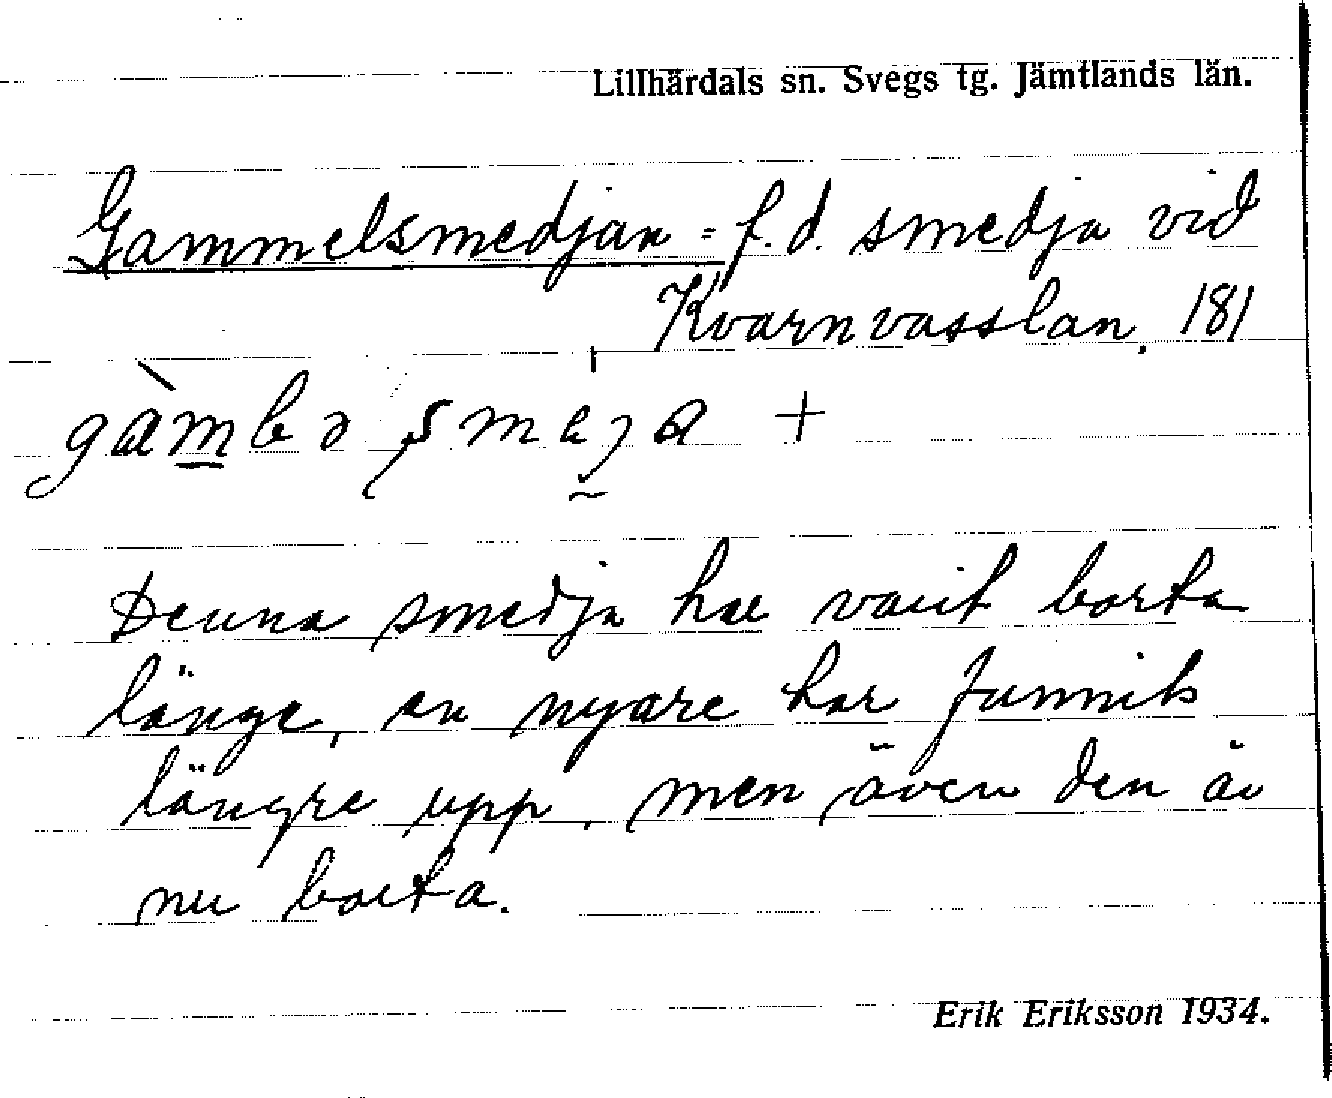 Lillhärdals sn. Svegs tg. Jämtlands län.
Gammelsmedjan = f.d. smedja vid
Kvarnvasslan, 181
gàmbə smeja +
Denna smedja har varit borta
länge, en nyare har funnits
längre upp, men även den är
nu borta.
Erik Eriksson 1934.